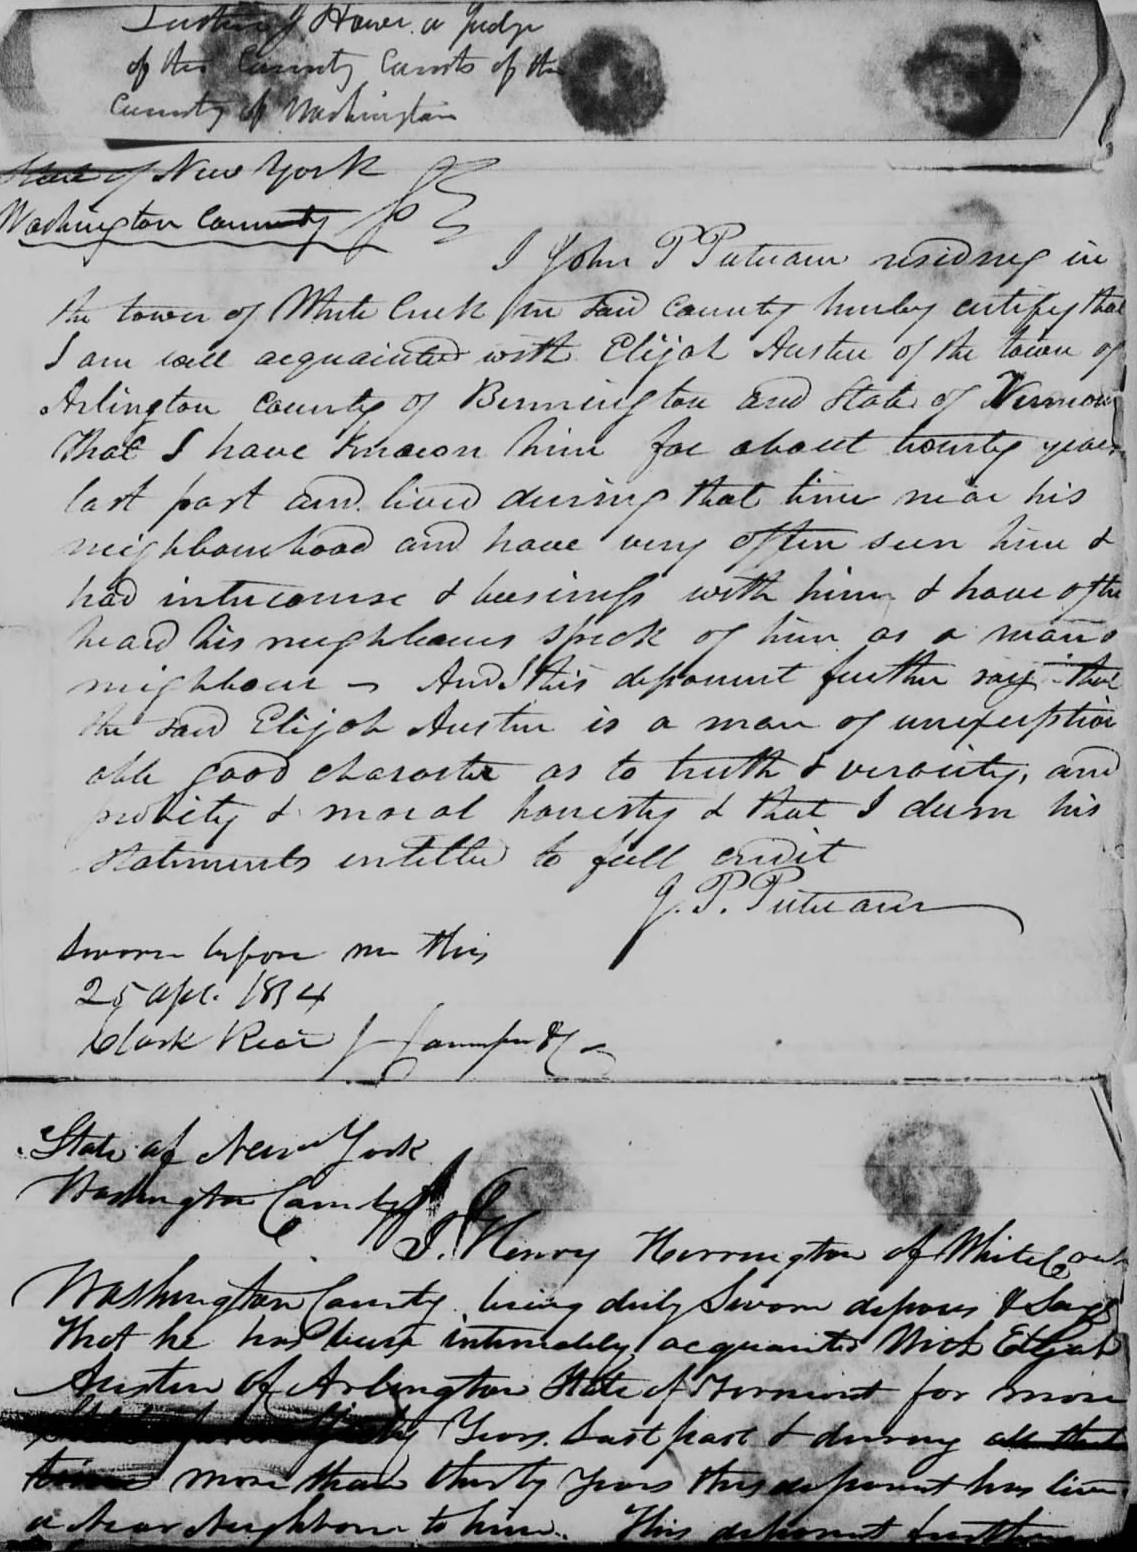 a Judge
of the County Courts of the
County of Washington
State of New York
Washington County ss
I John P Putnam residing in
the town of White Creek in said County hereby certify that
I am well acquainted with Elijah Austin of the town of
Arlington County of Bennington and State of Vermont
that I have known him for about twenty years
last past and lived during that time near his
neighbourhood and have very often seen him &
had intercourse & business with him & have often
heard his neighbours speak of him as a man &
neighbour – And this deponent further says that
the said Elijah Austin is a man of unexception
able good character as to truth & veracity, and
probity & moral honesty & that I deem his
statements entitled to full credit
J. P. Putnam
Sworn before me this
25 Apl. 1834
Clark Rice
State of New York
Washington County ss
I. Henry Herrington of White Creek
Washington County being duly Sworn deposes & Says
that he has been intimately acquainted With Elijah
Austin of Arlington State of Vermont for more
Years Last past & during all that
time more than thirty Years this deponent has live
a Near Neighbour to him. This deponent further